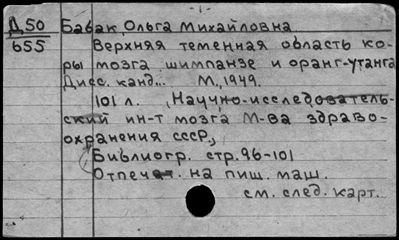 Д50 Бабак, Ольга Михайловна
655 Верхняя теменная область ко-
ры мозга шимпанзе и оранг-утанга
Дисс. канд... М., 1949.
101 л. (Научно-исследователь-
ский ин-т мозга М-ва здраво-
охранения СССР.)
Библиогр. стр. 96-101
Отпечат. на пиш. маш.
см. след. карт.